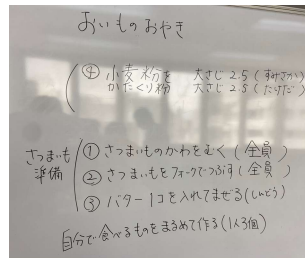 おいものおやき
④ 小麦粉を 大さじ 2.5 (すみさか)
かたくり粉 大さじ 2.5 (たけだ)
さつまいも準備
① さつまいものかわをむく (全員)
② さつまいもをフォークでつぶす (全員)
③ バター1コを入れてまぜる (しんどう)
自分で食べるものをまるめて作る (1人3個)